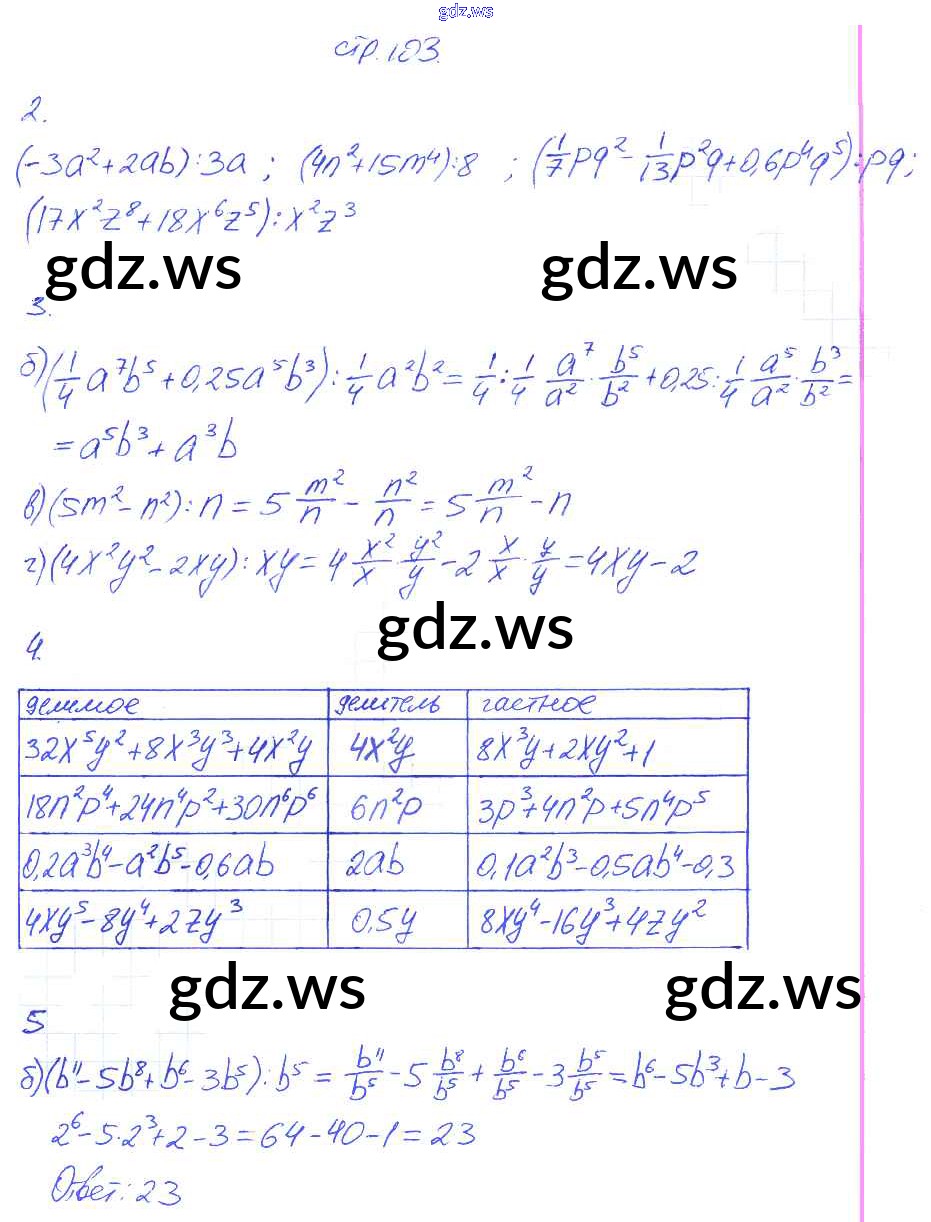 gdz.ws
стр. 103.
2.
(-3a²+2ab):3a ; (4n²+15m⁴):8 ; (1/7pq²-1/13p²q+0,6p⁴q⁵):pq;
(17x²z⁸+18x⁶z⁵):x²z³
gdz.ws gdz.ws
3.
б)(1/4 a⁷b⁵+0,25a⁵b³):1/4 a²b²=1/4:1/4 a⁷/a²·b⁵/b²+0,25:1/4 a⁵/a²·b³/b²=
=a⁵b³+a³b
в)(5m²-n²):n=5 m²/n - n²/n=5 m²/n-n
г)(4x²y²-2xy):xy=4 x²/x·y²/y-2 x/x·y/y=4xy-2
gdz.ws
4.
делимое делитель частное
32x⁵y²+8x³y³+4x²y 4x²y 8x³y+2xy²+1
18n²p⁴+24n⁴p²+30n⁶p⁶ 6n²p 3p³+4n²p+5n⁴p⁵
0,2a³b⁴-a²b⁵-0,6ab 2ab 0,1a²b³-0,5ab⁴-0,3
4xy⁵-8y⁴+2zy³ 0,5y 8xy⁴-16y³+4zy²
gdz.ws gdz.ws
5
б)(b¹¹-5b⁸+b⁶-3b⁵):b⁵=b¹¹/b⁵-5 b⁸/b⁵+b⁶/b⁵-3 b⁵/b⁵=b⁶-5b³+b-3
2⁶-5·2³+2-3=64-40-1=23
Ответ: 23